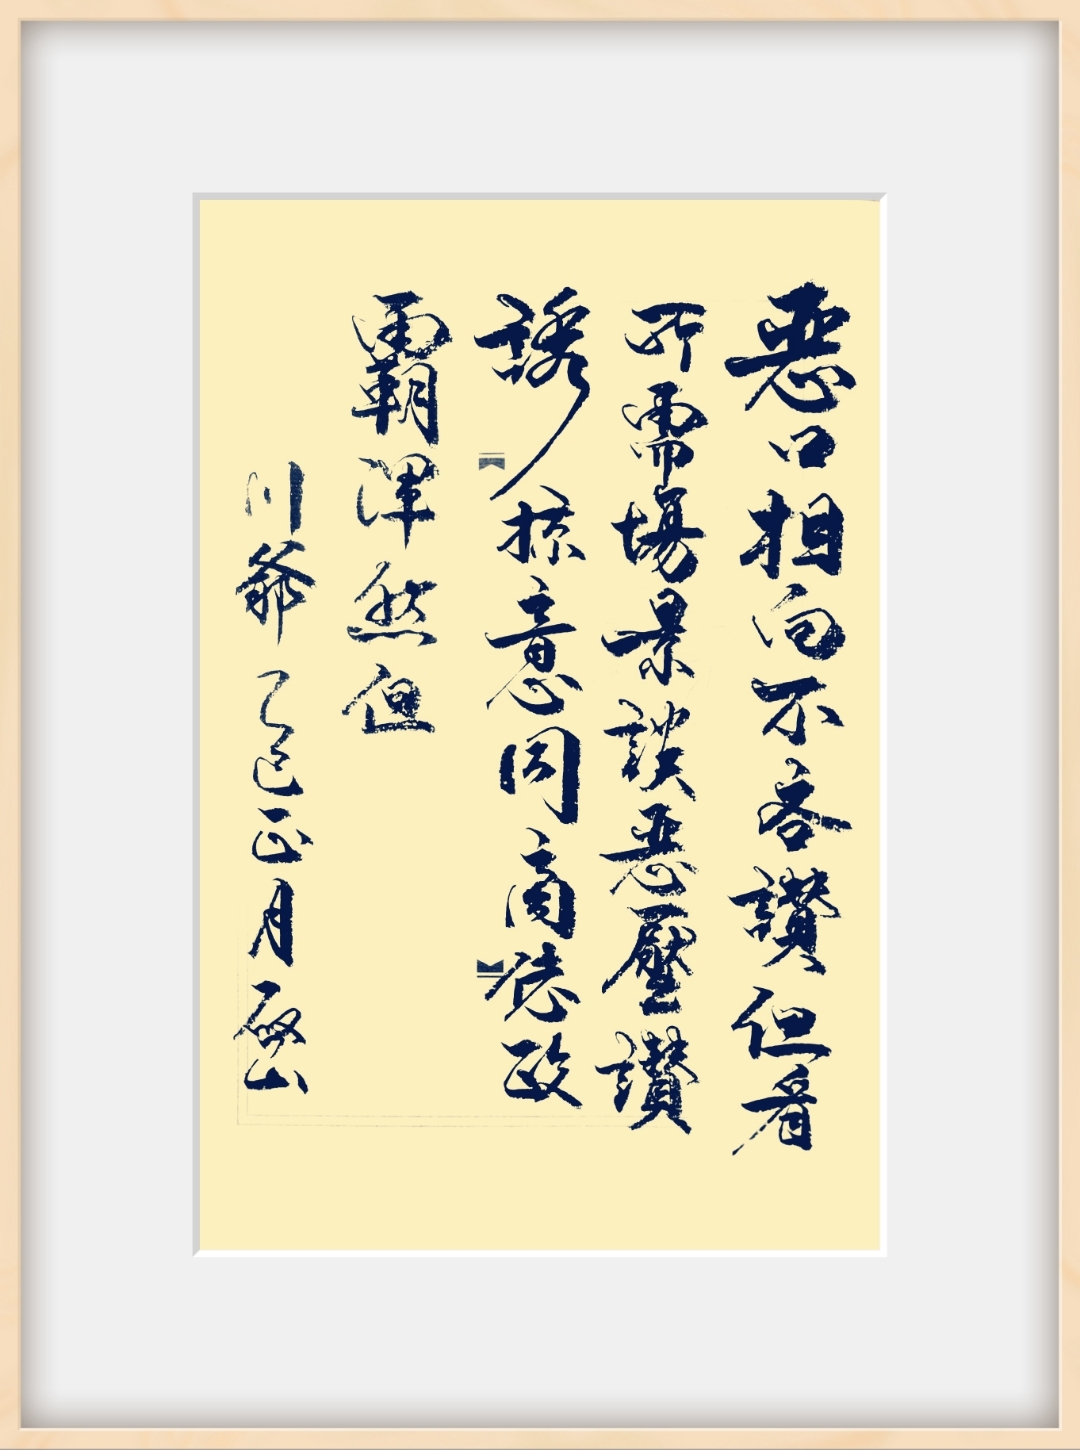 惡口相向不吝讚但看
所需場景談惡壓讚
誘掠意同商德政
霸渾然但
川爺乙巳正月啟山